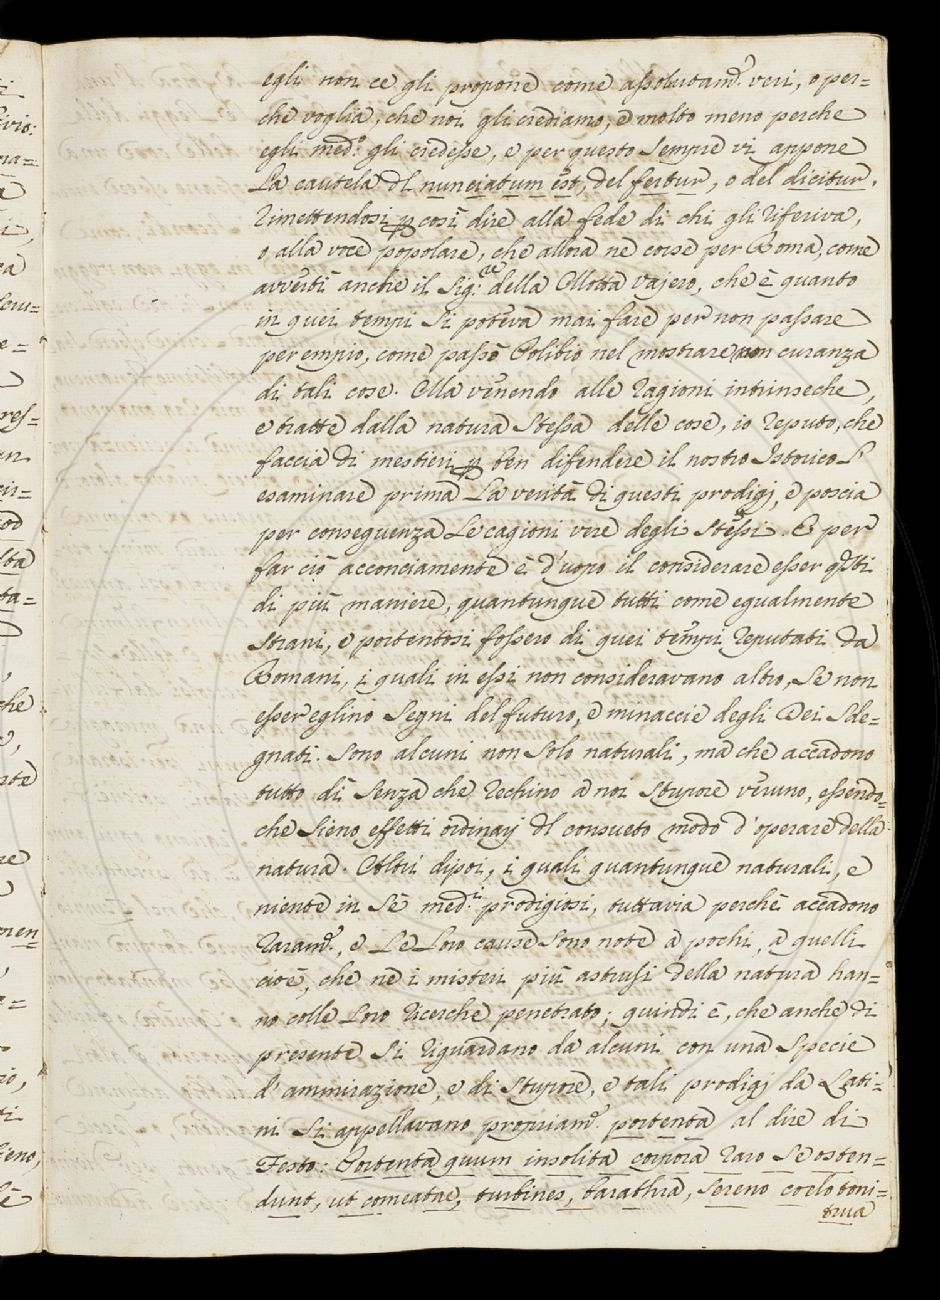 egli non ce gli propone come assolutam.e veri, o per=
chè voglia, che noi gli crediamo, e molto meno perche
egli med.o gli credesse, e per questo sempre vi appone
La cautela dl nunciatum est, del fertur, o del dicitur.
Rimettendosi p così dire alla fede di chi gli riferiva,
o alla voce popolare, che allora ne corse per Roma, come
avvertì anche il Sig.re della Motta Vajero, che è quanto
in quei tempi si poteva mai fare per non passare
per empio, come passò Polibio nel mostrare non curanza
di tali cose. Ma venendo alle ragioni intrinseche,
e tratte dalla natura stessa delle cose, io reputo, che
faccia di mestieri p ben difendere il nostro Istorico l'
esaminare prima La verità di questi prodigj, e poscia
per conseguenza Le cagioni vere degli stessi. E per
far ciò acconciamente è d'uopo il considerare esser qsti
di più maniere, quantunque tutti come egualmente
strani, e portentosi fossero di quei tempi reputati da
Romani, i quali in essi non consideravano altro, se non
esser eglino segni del futuro, e minaccie degli Dei sde=
gnati. Sono alcuni non solo naturali, ma che accadono
tutto dì senza che rechino a noi stupore veruno, essendo=
che sieno effetti ordinarj dl consueto modo d'operare della
natura. Altri dipoi, i quali quantunque naturali, e
niente in se med.i prodigiosi, tuttavia perchè accadono
raram.e, e Le Loro cause sono note a pochi, a quelli
cioè, che ne i misteri più astrusi della natura han=
no colle Loro ricerche penetrato; quindi è, che anche di
presente si riguardano da alcuni con una specie
d'ammirazione, e di stupore, e tali prodigj da Lati=
ni si appellavano propriam.e portenta al dire di
Festo: Portenta quum insolita corpora raro se osten=
dunt, ut cometae, turbines, barathra, sereno coelo toni=
trua